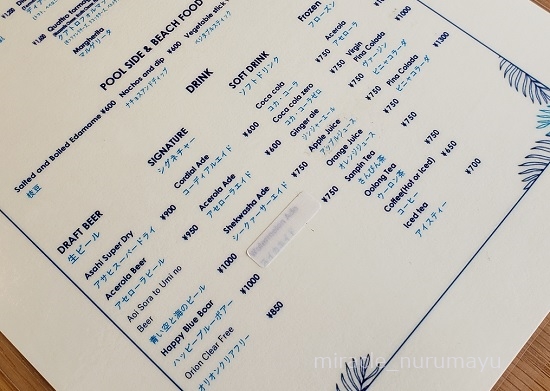 ¥1,
Quattro forma
クアトロフォルマッ
¥1,
Margherita
マルゲリータ
POOL SIDE & BEACH FOOD
Salted and Boiled Edamame ¥600
枝豆
Nachos and dip ¥600
ナチョスアンドディップ
Vegetable stick
ベジタブルスティック
DRINK
DRAFT BEER
生ビール
Asahi Super Dry ¥900
アサヒスーパードライ
Acerola Beer ¥950
アセローラビール
Aoi Sora to Umi no
Beer ¥1000
青い空と海のビール
Happy Blue Boar ¥1000
ハッピーブルーボアー
Orion Clear Free ¥850
オリオンクリアフリー
SIGNATURE
シグネチャー
Cordial Ade ¥600
コーディアルエイド
Acerola Ade ¥600
アセローラエイド
Shekwasha Ade ¥750
シークァーサーエイド
¥750
SOFT DRINK
ソフトドリンク
Coca cola
コカ・コーラ
Coca cola zero ¥750
コカ・コーラゼロ
Ginger ale ¥750
ジンジャーエール
Apple juice ¥750
アップルジュース
Orange juice ¥750
オレンジジュース
Sanpin Tea ¥750
さんぴん茶
Oolong Tea ¥750
ウーロン茶
Coffee(Hot or Iced) ¥650
コーヒー
Iced tea ¥700
アイスティー
Frozen
フローズン
Acerola ¥1300
アセローラ
Virgin
Pina Colada ¥1300
ヴァージン
ピニャコラーダ
Pina Colada ¥1300
ピニャコラーダ
miracle_nurumayu